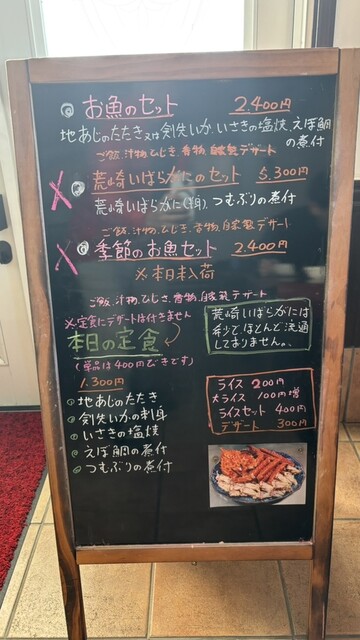 ◎ お魚のセット 2.400円
地あじのたたき又は剣先いか、いさきの塩焼、えぼ鯛
の煮付
ご飯、汁物、ひじき、香物、自家製デザート
✕ ◎ 荒崎いばらがにのセット 5.300円
荒崎いばらがに(半身)、つむぶりの煮付
ご飯、汁物、ひじき、香物、自家製デザート
✕ ◎ 季節のお魚セット 2.400円
※本日未入荷
ご飯、汁物、ひじき、香物、自家製デザート
※定食にデザートは付きません
本日の定食
(単品は400円びきです)
1.300円
◎ 地あじのたたき
◎ 剣先いかの刺身
◎ いさきの塩焼
◎ えぼ鯛の煮付
◎ つむぶりの煮付
荒崎いばらがには
希少でほとんど流通
しておりません。
ライス 200円
大ライス 100円増
ライスセット 400円
デザート 300円